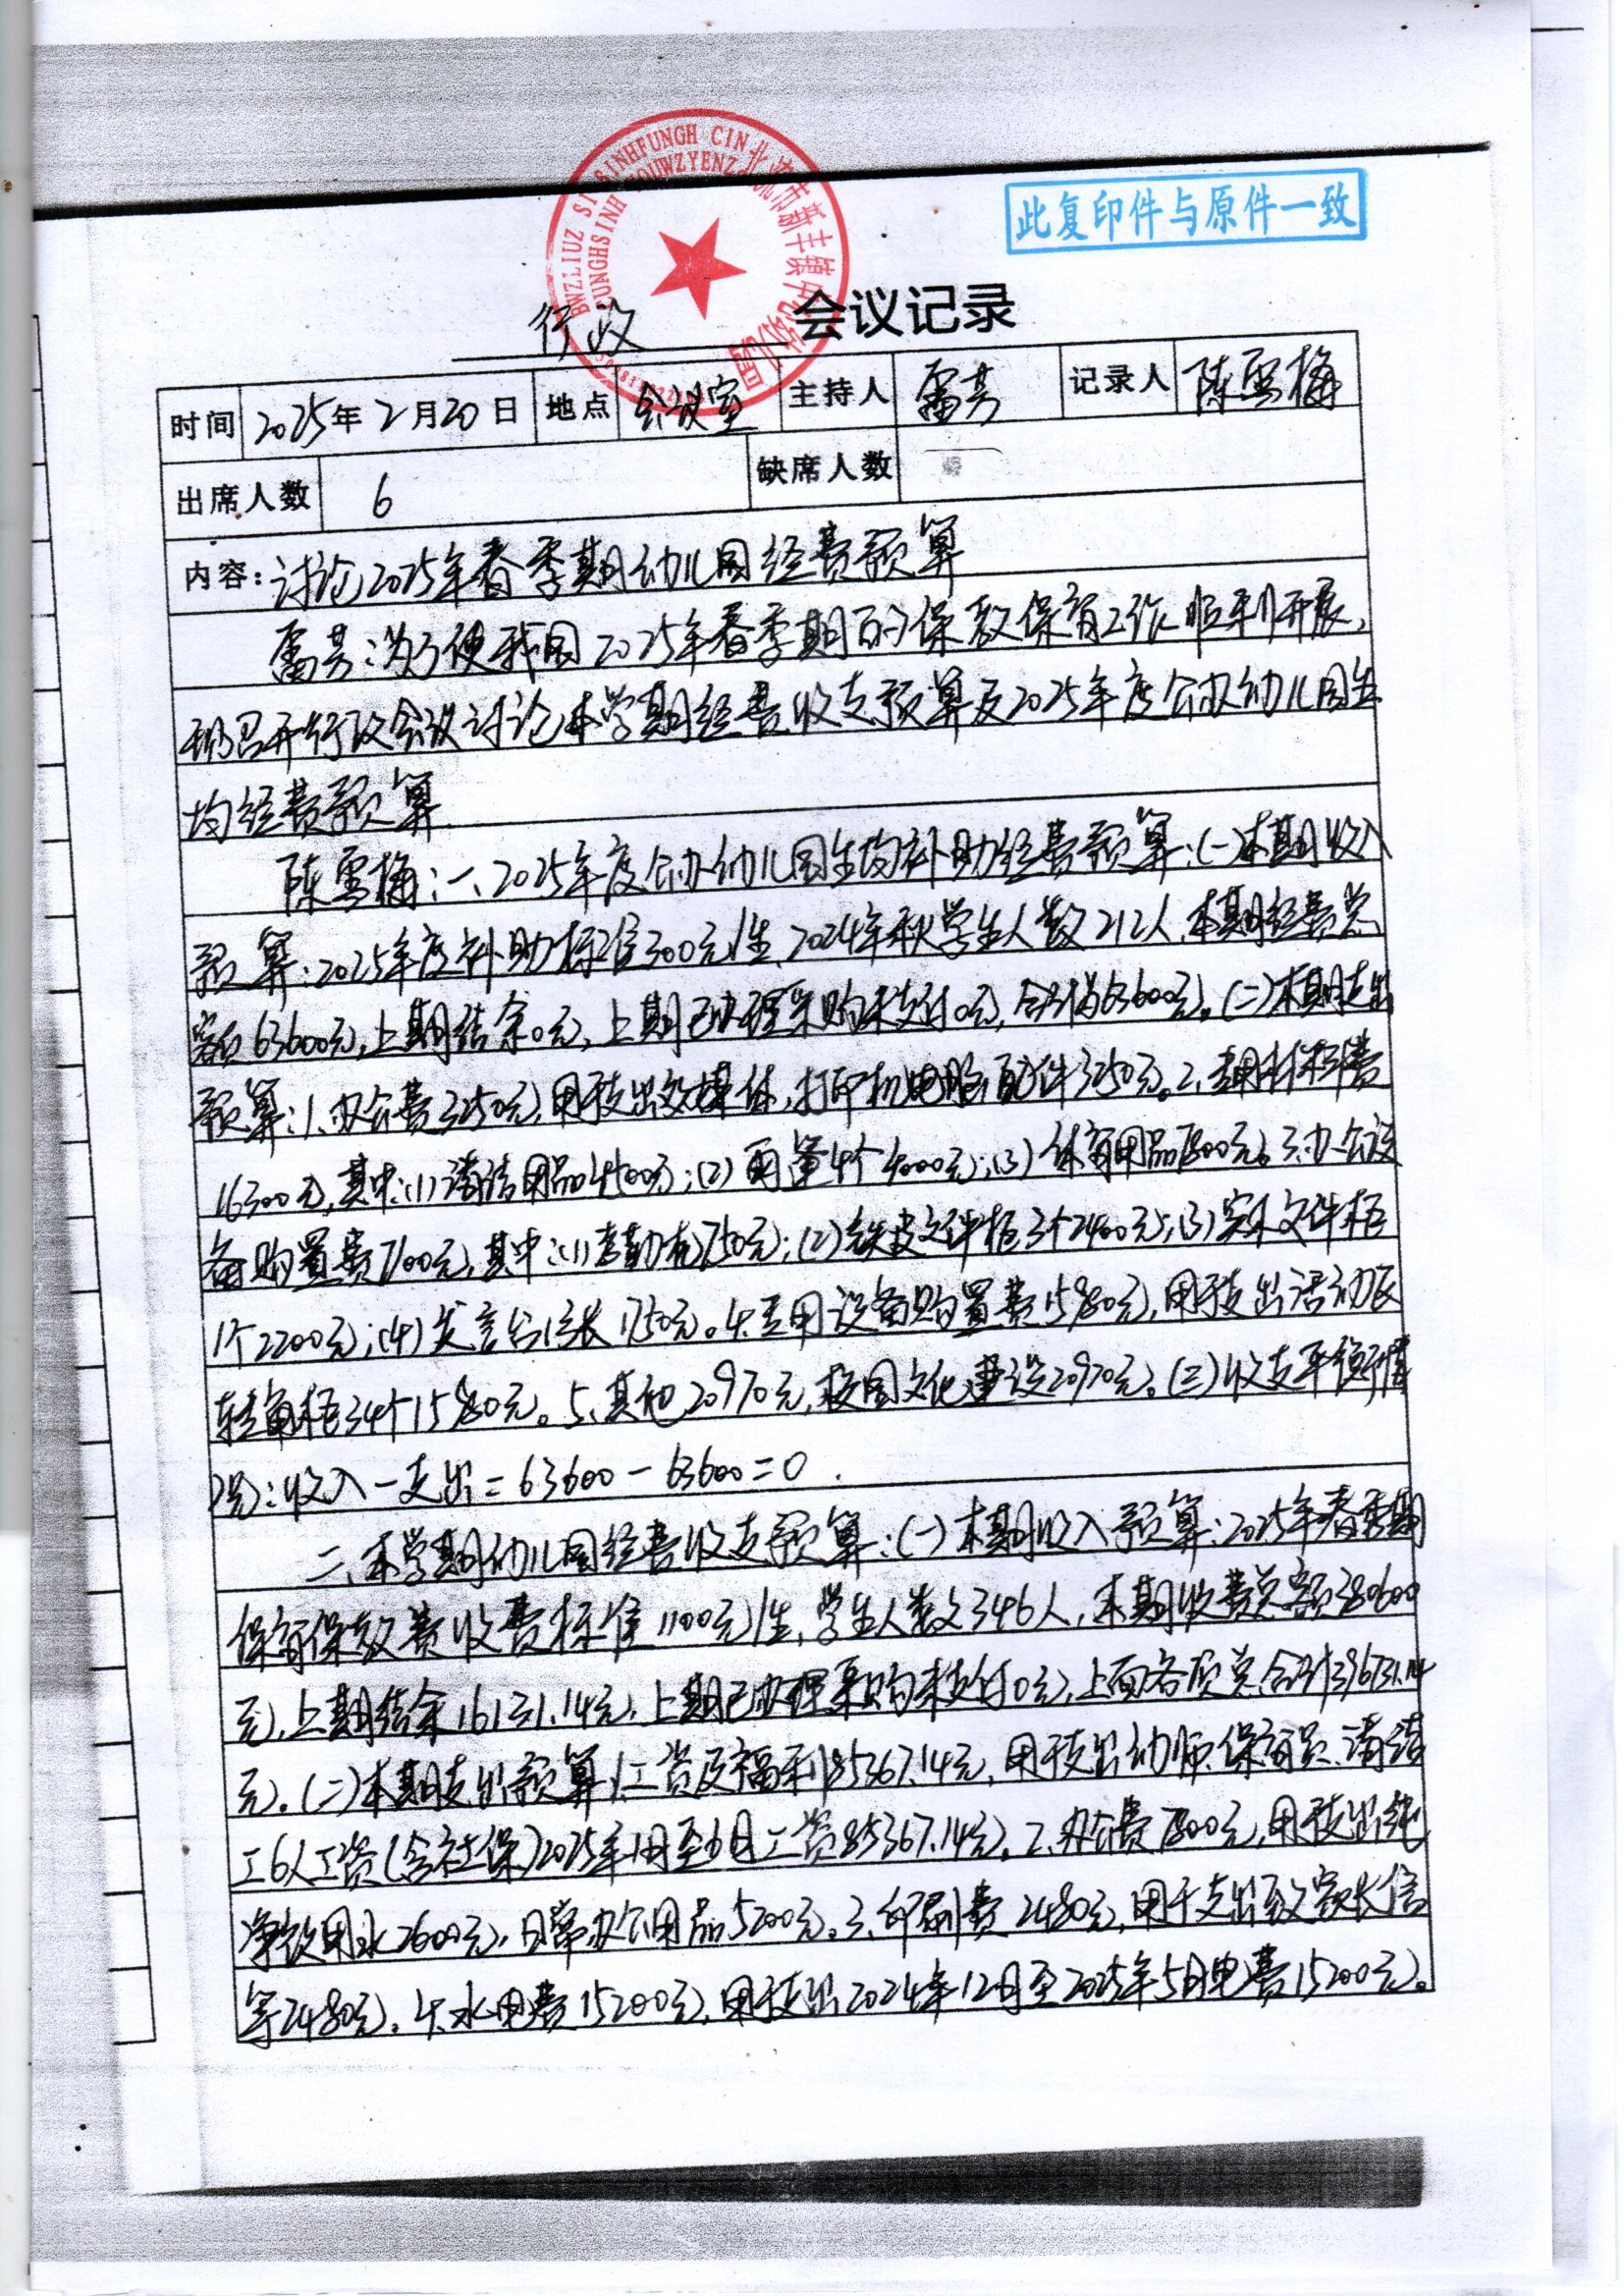 BWZLIUZ SI SINHFUNGH CIN
北流市新丰镇中心幼儿园
此复印件与原件一致
行政 会议记录
时间 2025年2月20日 地点 会议室 主持人 雷芳 记录人 陈雪梅
出席人数 6 缺席人数
内容:讨论2025年春季期幼儿园经费预算
雷芳:为了使我园2025年春季期的保教保育工作顺利开展,
现召开行政会议讨论本学期经费收支预算及2025年度公办幼儿园生
均经费预算
陈雪梅:一、2025年度公办幼儿园生均补助经费预算:(一)本期收入
预算:2025年度补助标准300元/生,2024年秋学生人数212人,本期经费总
额63600元,上期结余0元,上期已办理采购未支付0元,合计为63600元。(二)本期支出
预算:1、办公费3250元,用于支出多媒体,打印机电脑配件3250元。2、专用材料费
16300元,其中:(1)清洁用品4500元;(2)雨篷4个4000元;(3)体育用品7800元。3、办公设
备购置费7100元,其中:(1)考勤机750元;(2)铁皮文件柜3个2400元;(3)实木文件柜
1个2200元;(4)发言台1张1750元。4、专用设备购置费15980元,用于支出活动区
转角柜34个15980元。5、其他20970元,校园文化建设20970元。(三)收支平衡情
况:收入-支出=63600-63600=0.
二、本学期幼儿园经费收支预算:(一)本期收入预算:2025年春季期
保育保教费收费标准1100元/生,学生人数346人,本期收费总额380600
元,上期结余16131.14元,上期已办理采购未支付0元,上面各项总合计396731.14
元。(二)本期支出预算:1、工资及福利85367.14元,用于支出幼师、保育员、清洁
工6人工资(含社保)2025年1月至6月工资85367.14元。2、办公费7800元,用于支出纯
净饮用水2600元,日常办公用品5200元。3、印刷费2480元,用于支出致家长信
等2480元。4、水电费15200元,用于支出2024年12月至2025年5月电费15200元。